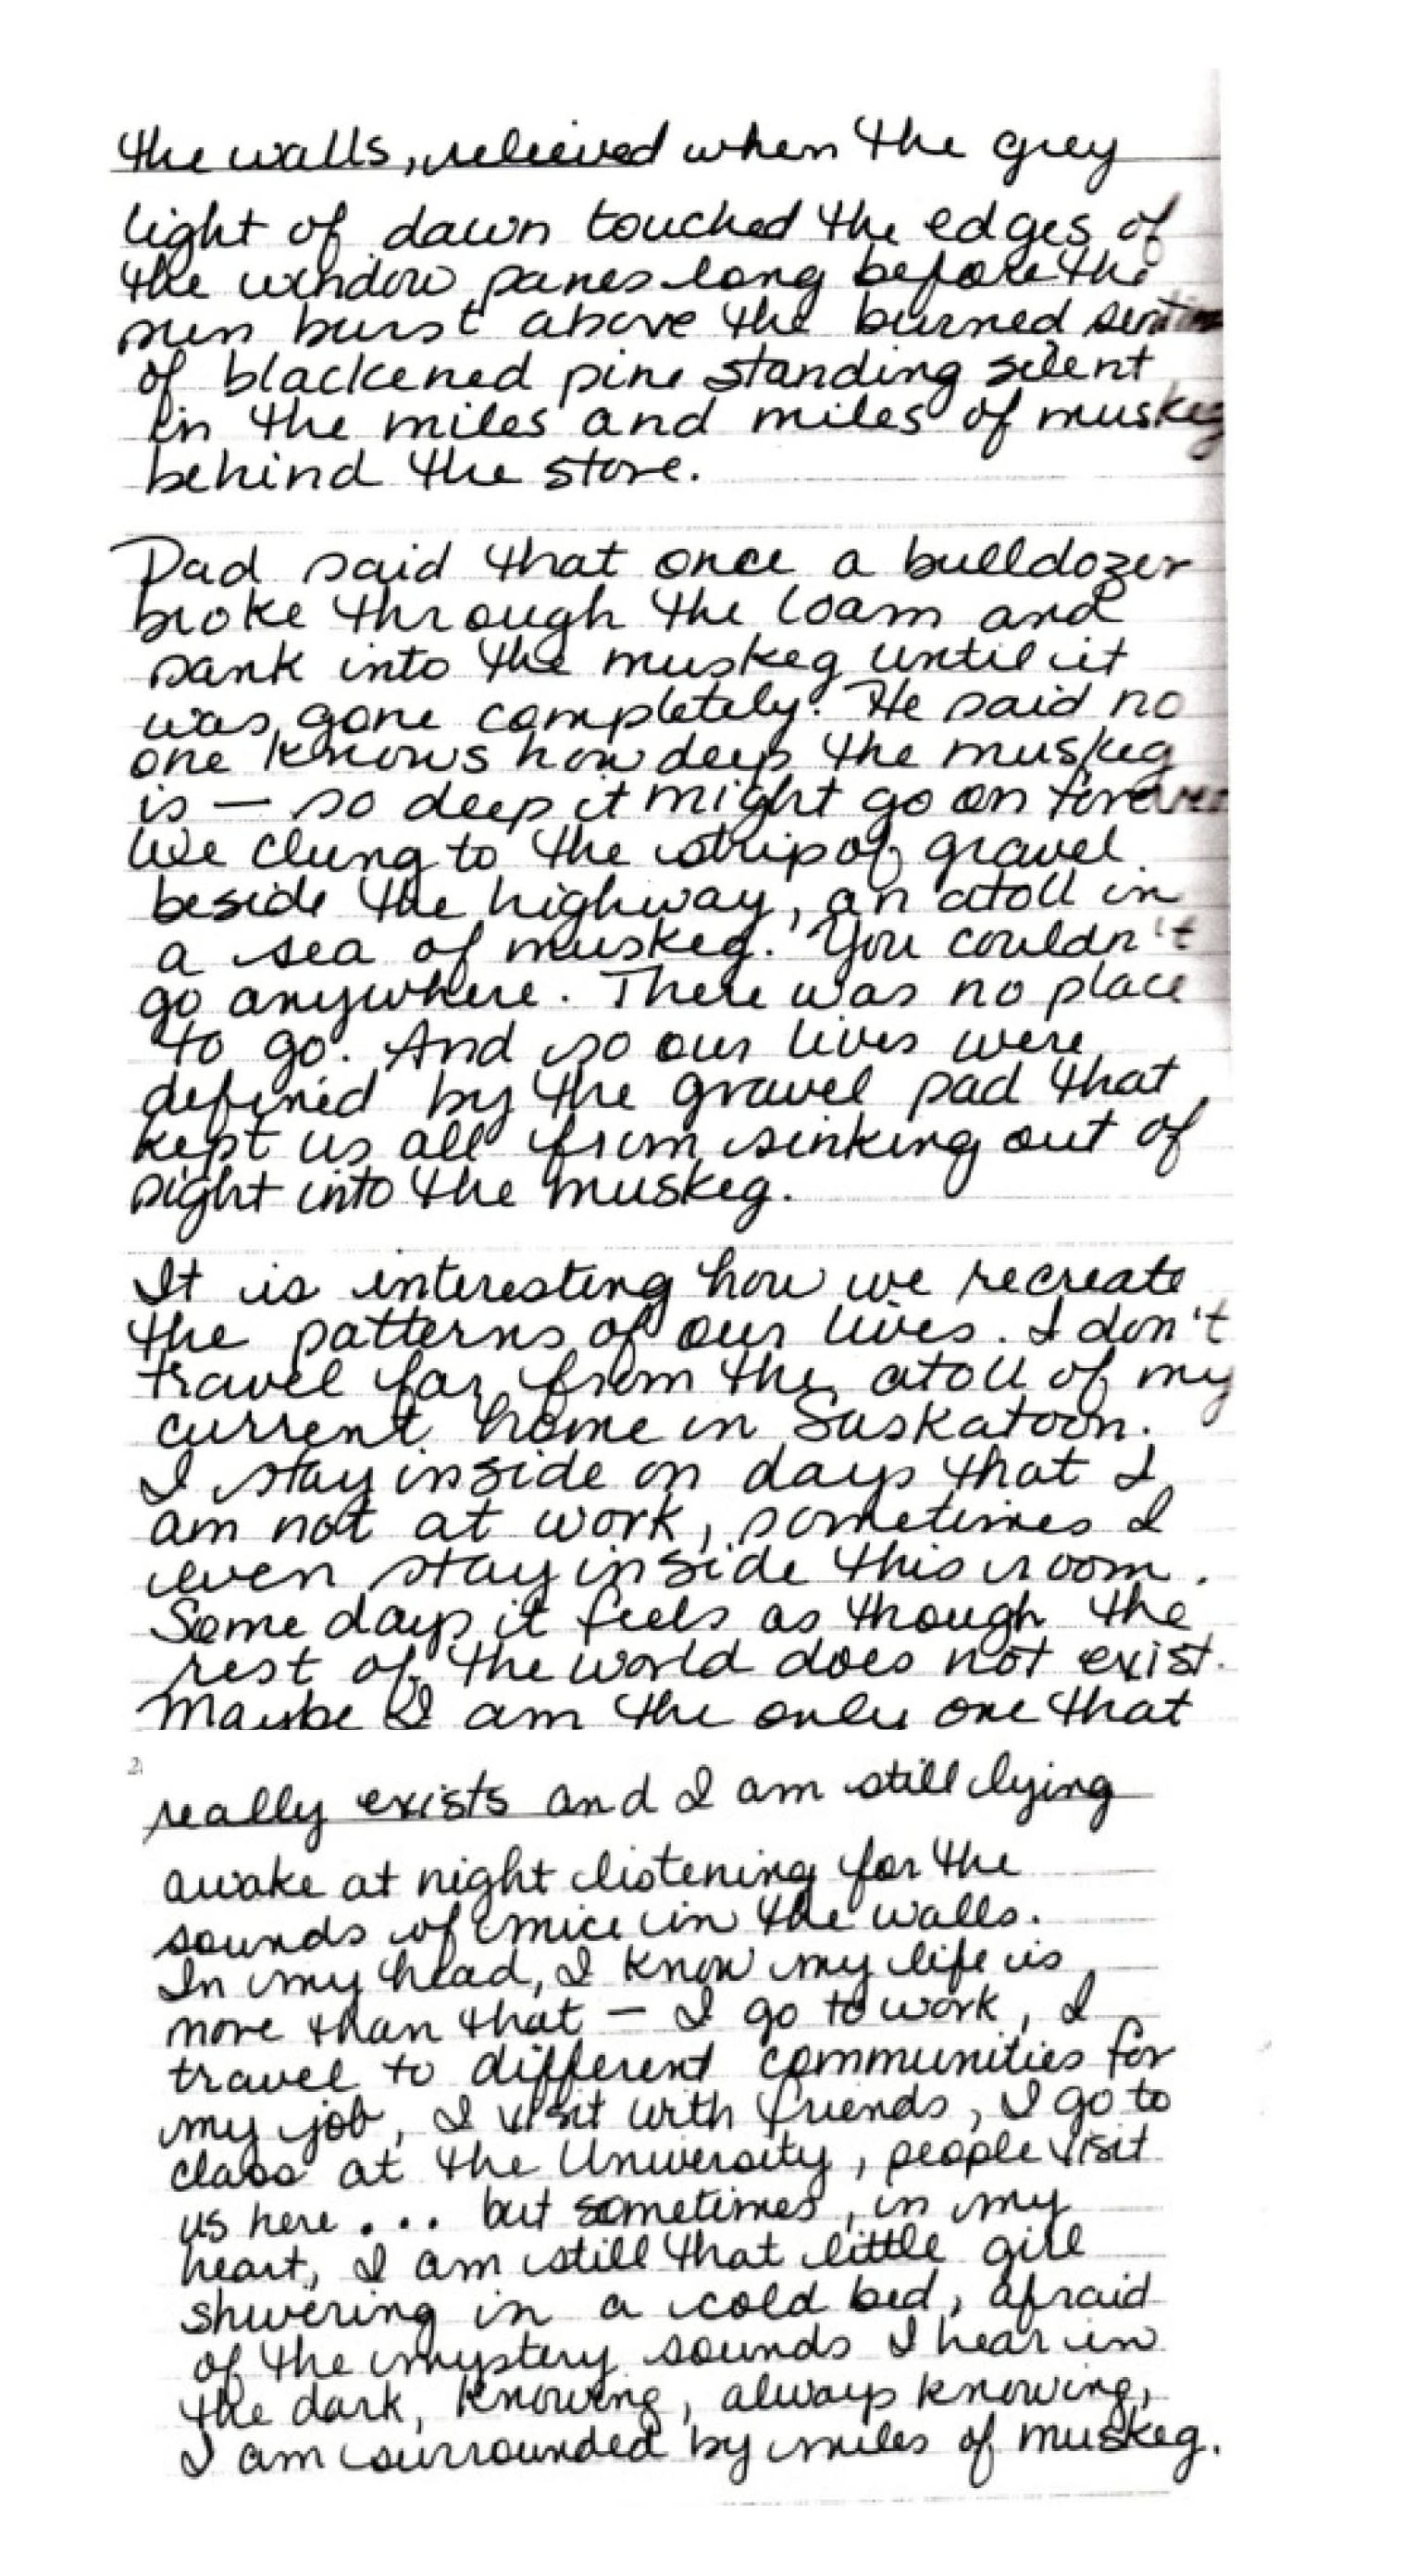 the walls, relieved when the grey
light of dawn touched the edges of
the window panes long before the
sun burst above the burned
of blackened pine standing silent
in the miles and miles of muskeg
behind the store.
Dad said that once a bulldozer
broke through the loam and
sank into the muskeg until it
was gone completely. He said no
one knows how deep the muskeg
is — so deep it might go on forever
We clung to the strip of gravel
beside the highway, an atoll in
a sea of muskeg. You couldn't
go anywhere. There was no place
to go. And so our lives were
defined by the gravel pad that
kept us all from sinking out of
sight into the muskeg.
It is interesting how we recreate
the patterns of our lives. I don't
travel far from the atoll of my
current home in Saskatoon.
I stay inside on days that I
am not at work, sometimes I
even stay inside this room.
Some days it feels as though the
rest of the world does not exist.
Maybe I am the only one that
2
really exists and I am still lying
awake at night listening for the
sounds of mice in the walls.
In my head, I know my life is
more than that — I go to work, I
travel to different communities for
my job, I visit with friends, I go to
class at the University, people visit
us here... but sometimes, in my
heart, I am still that little girl
shivering in a cold bed, afraid
of the mystery sounds I hear in
the dark, knowing, always knowing,
I am surrounded by miles of muskeg.